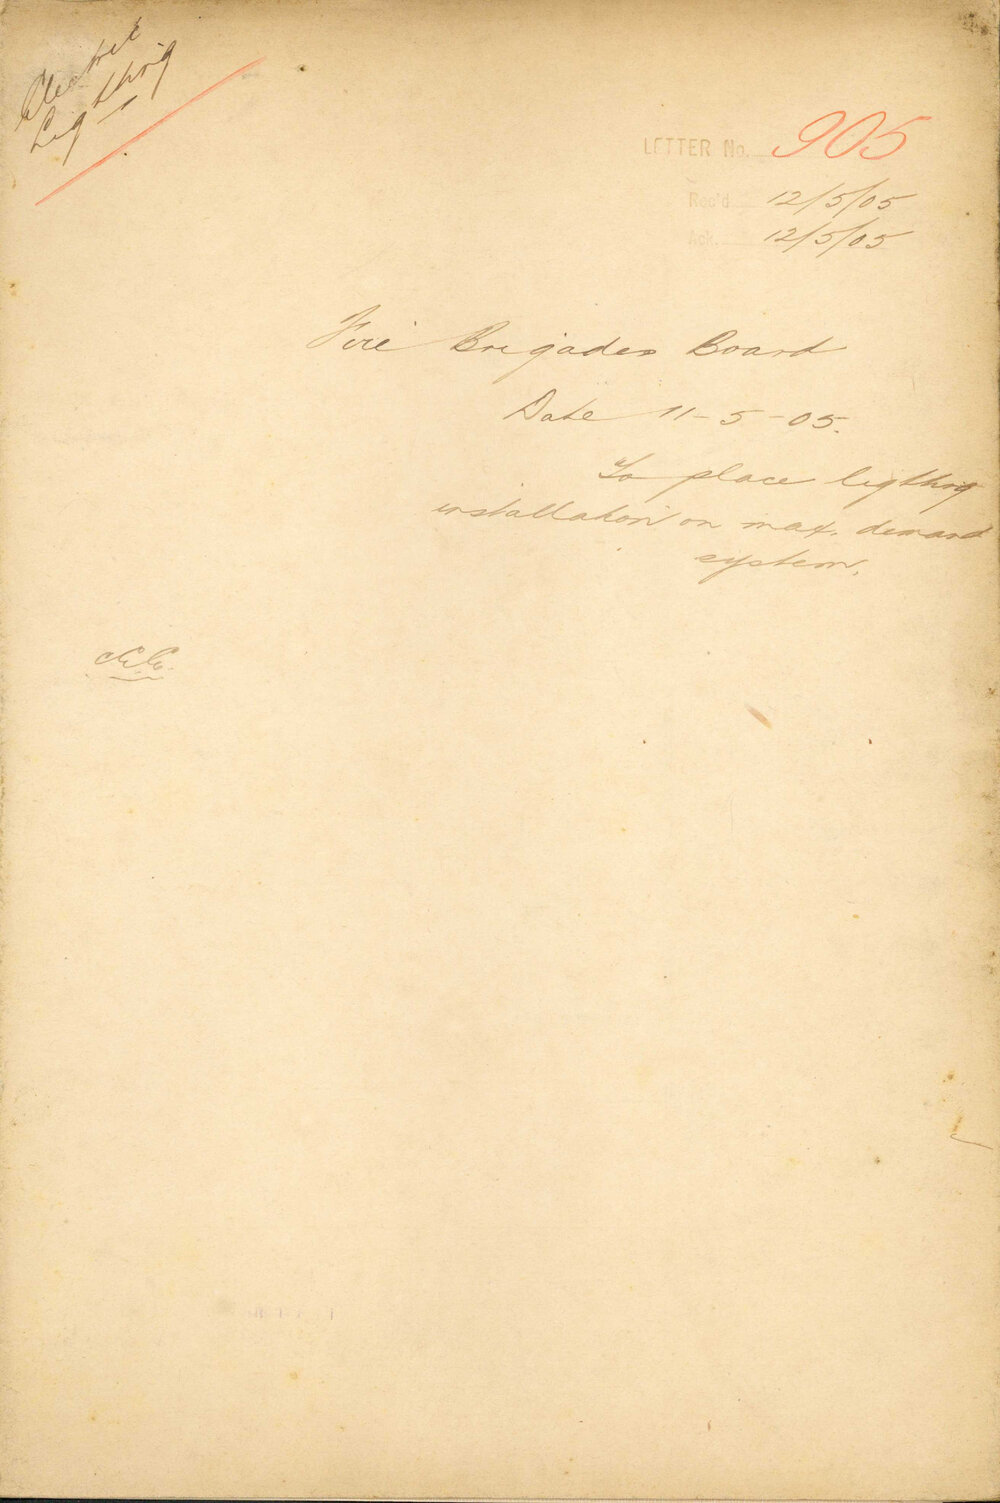 Electric
Lighting
LETTER No. 905
Rec'd 12/5/05
Ack. 12/5/05
Fire Brigades Board
Date 11-5-05.
To place ligthing
installation on max. demand
system.